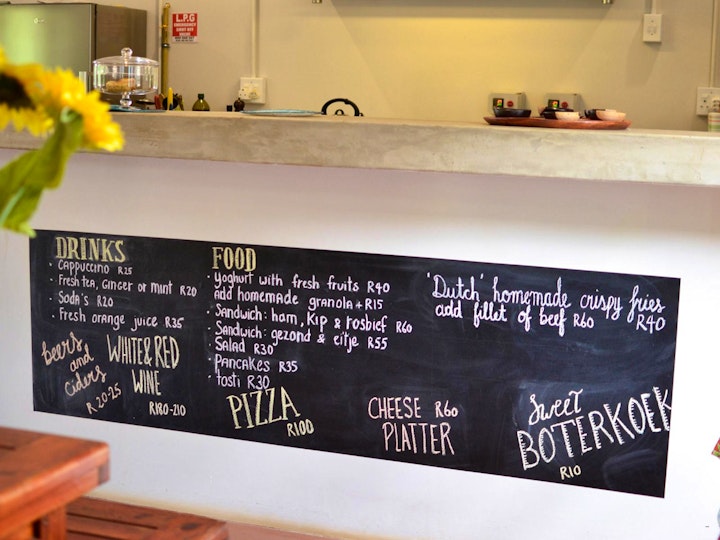 L.P.G
DRINKS
· Cappuccino R25
· Fresh tea, Ginger or mint R20
· Soda's R20
· Fresh orange juice R35
beers and ciders
R20-25
WHITE & RED WINE
R180-210
FOOD
· Yoghurt with fresh fruits R40
add homemade granola + R15
· Sandwich: ham, kip & rosbief R60
· Sandwich: gezond & eitje R55
· Salad R30
· Pancakes R35
· tosti R30
PIZZA
R100
'Dutch' homemade crispy fries R40
add fillet of beef R60
CHEESE R60
PLATTER
Sweet
BOTERKOEK
R10